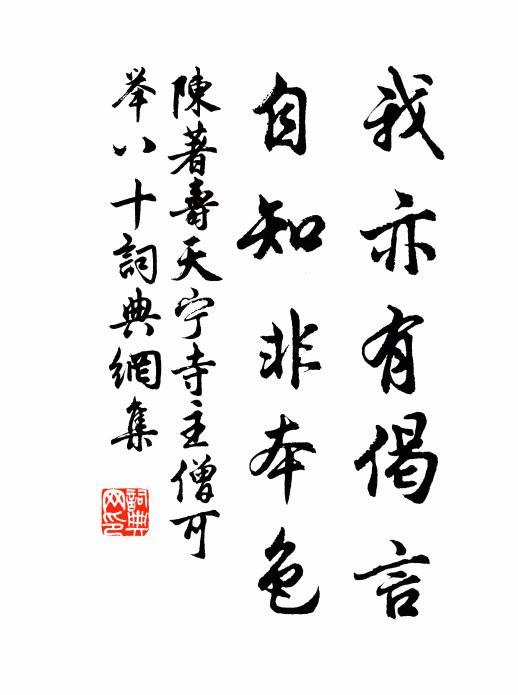 我亦有偈言
自知非本色
陳著壽天宁寺主僧可
举八十詞典網集
詞典
网印